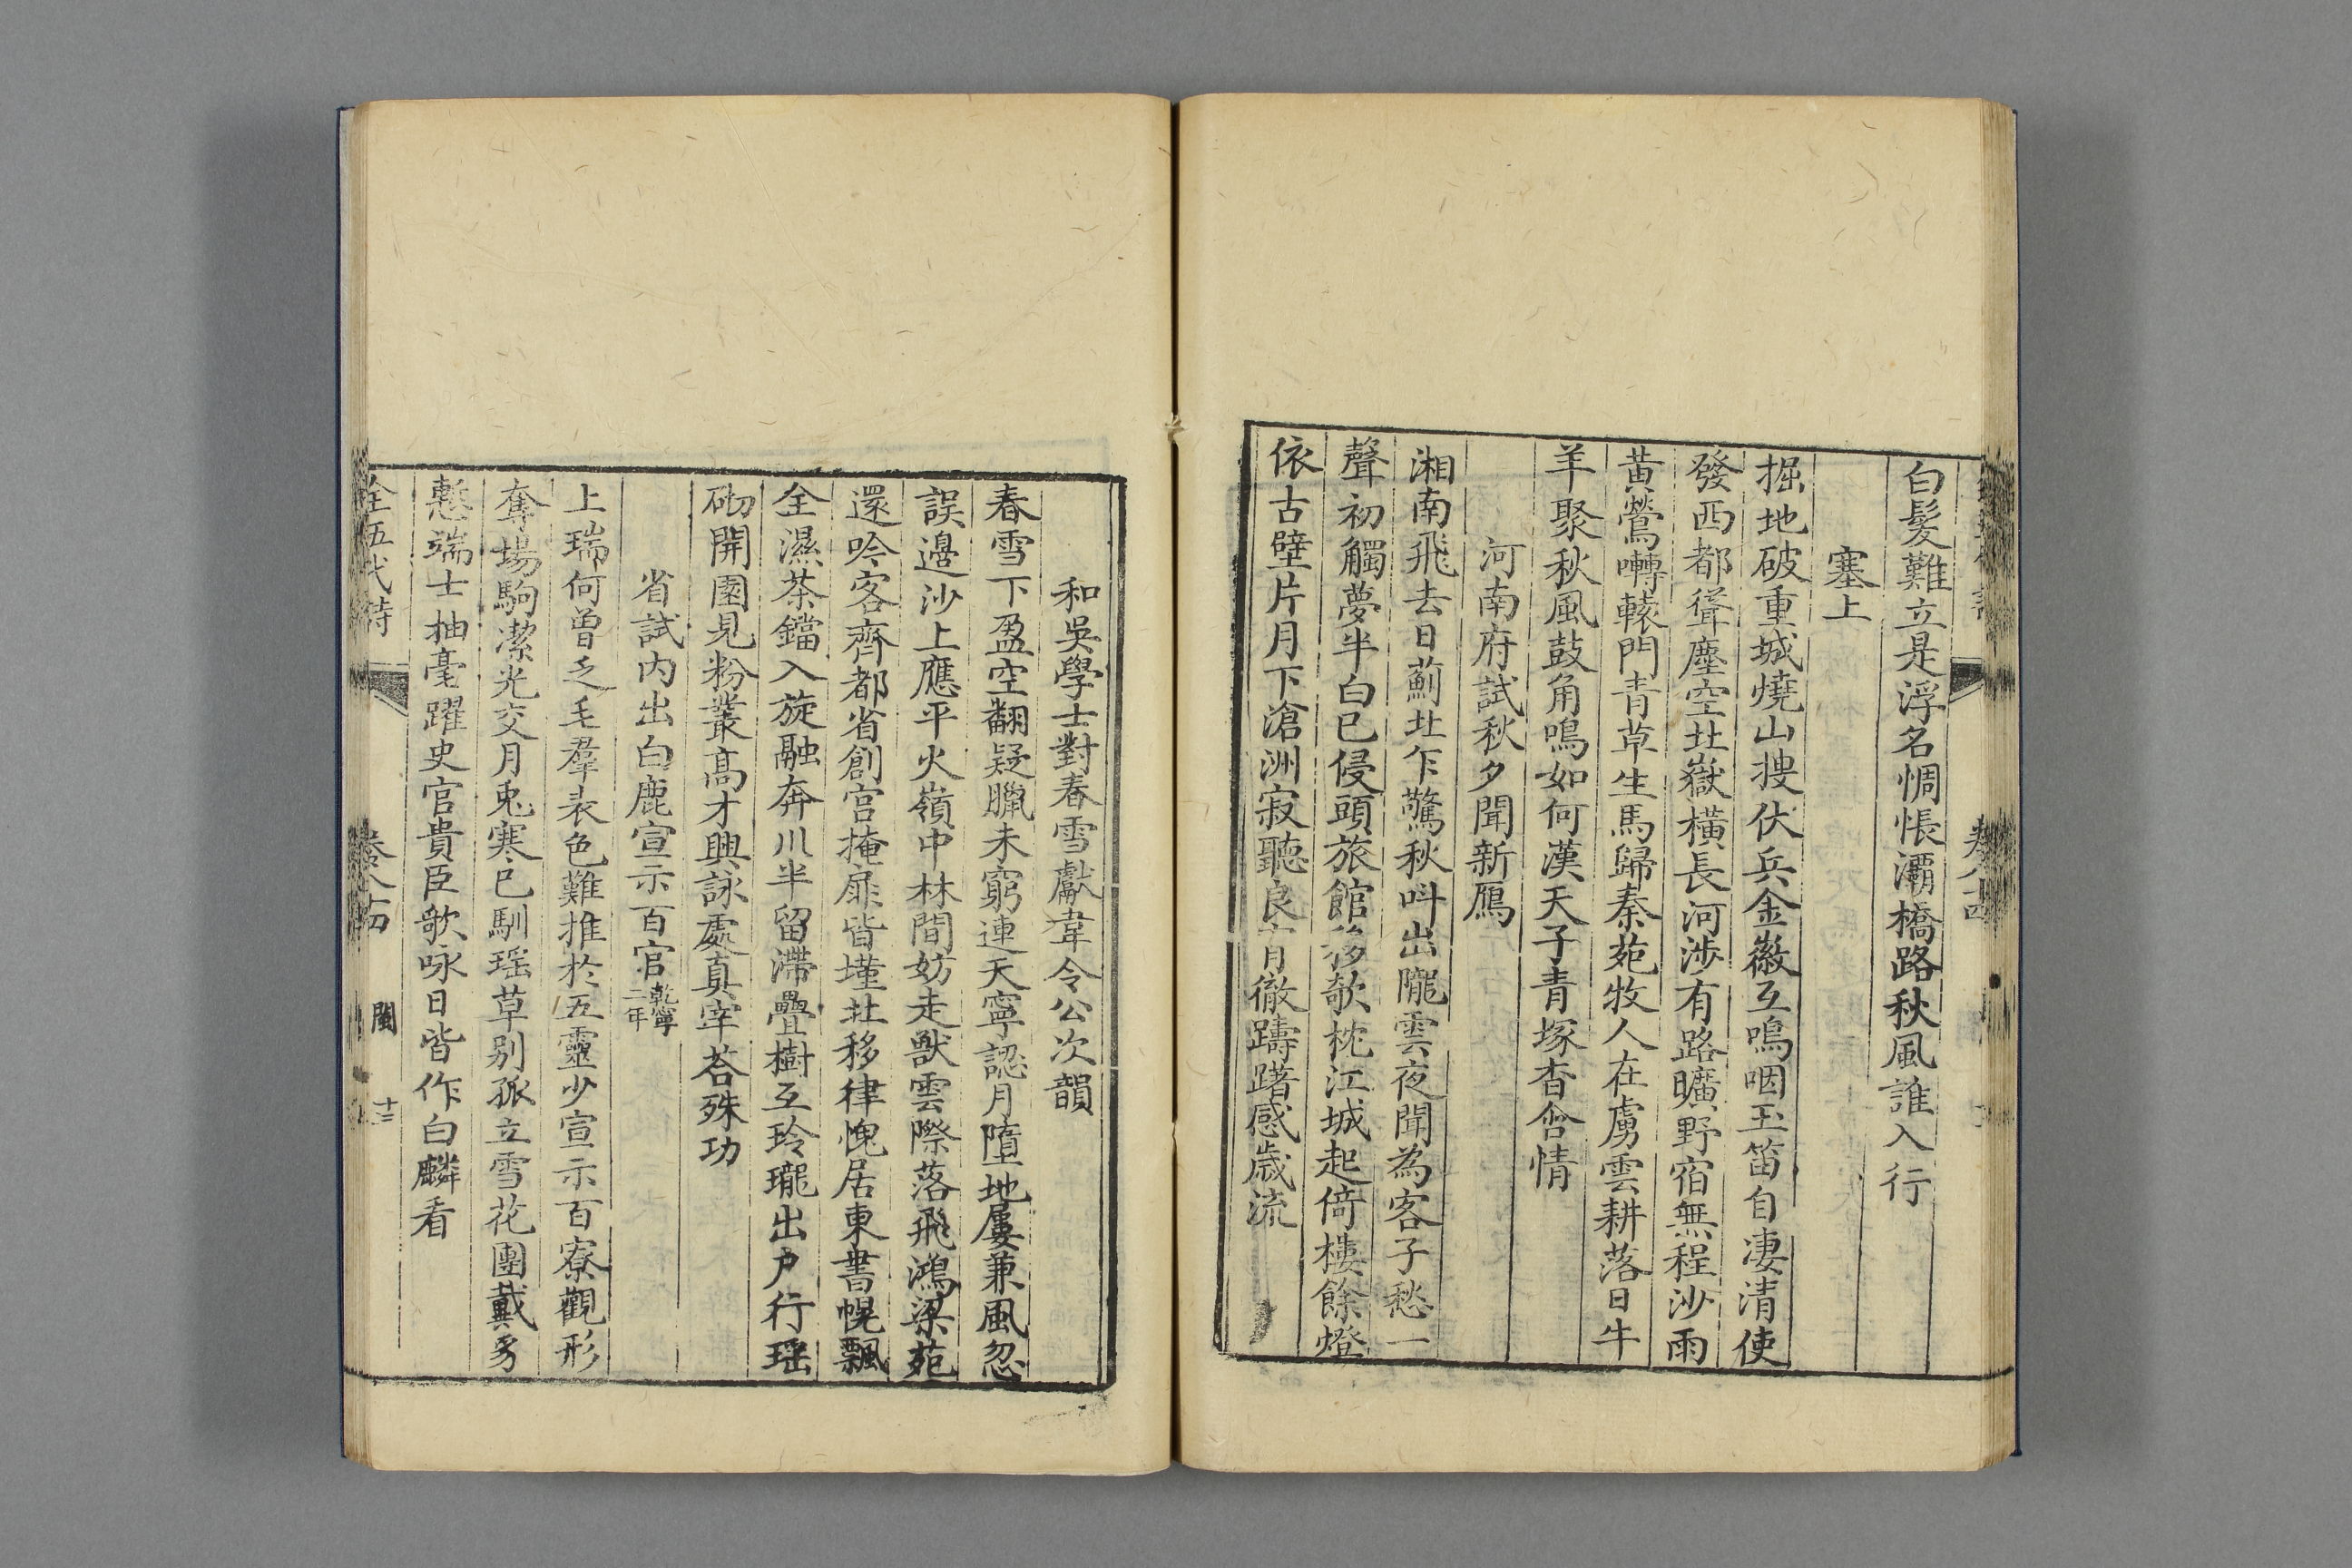 白髮難立是浮名惆悵灞橋路秋風誰入行
塞上
掘地破重城燒山搜伏兵金徽互鳴咽玉笛自凄清使
發西都聳塵空北嶽橫長河涉有路曠野宿無程沙雨
黃鶯囀轅門青草生馬歸秦苑牧人在虜雲耕落日牛
羊聚秋風鼓角鳴如何漢天子青塚杳含情
河南府試秋夕聞新鴈
湘南飛去日薊北乍驚秋呌出隴雲夜聞為客子愁一
聲初觸夢半白已侵頭旅館移欹枕江城起倚樓餘燈
依古壁片月下滄洲寂聽良宵徹躊躇感歲流
和吳學士對春雪獻韋令公次韻
春雪下盈空翻疑臘未窮連天寧認月墮地屢兼風忽
誤邊沙上應平火嶺中林間妨走獸雲際落飛鴻梁苑
還吟客齊都省創宮掩扉皆墐北移律愧居東書幌飄
全濕茶鐺入旋融奔川半留滯疊樹互玲瓏出戶行瑶
砌開園見粉叢高才興詠處真宰荅殊功
省試内出白鹿宣示百官乾寧二年
上瑞何曾乏毛羣表色難推於五靈少宣示百寮觀形
奪塲駒潔光交月兎寒已馴瑶草别孤立雪花團戴豸
慙端士抽毫躍史官貴臣歌咏日皆作白麟看
全五代詩
卷八十四
閩
十三